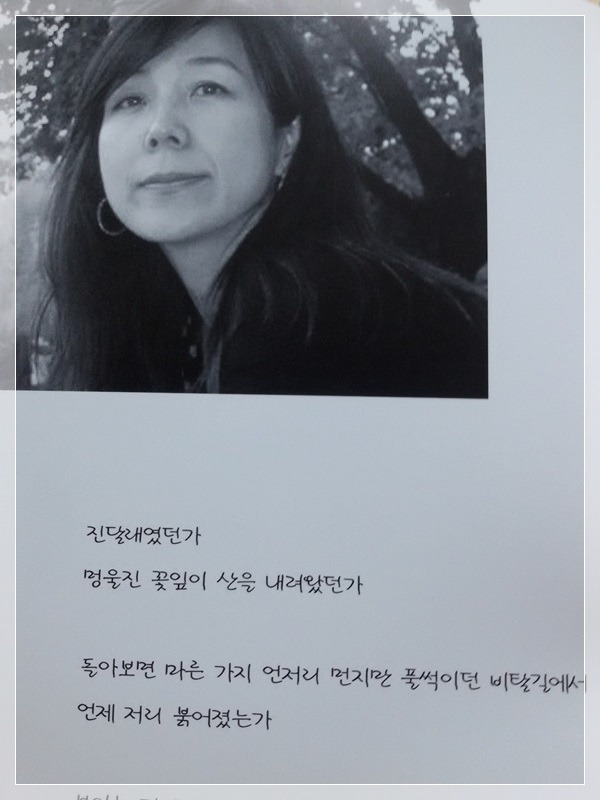 진달래였던가
멍울진 꽃잎이 산을 내려왔던가
돌아보면 마른 가지 언저리 먼지만 풀썩이던 비탈길에서
언제 저리 붉어졌는가